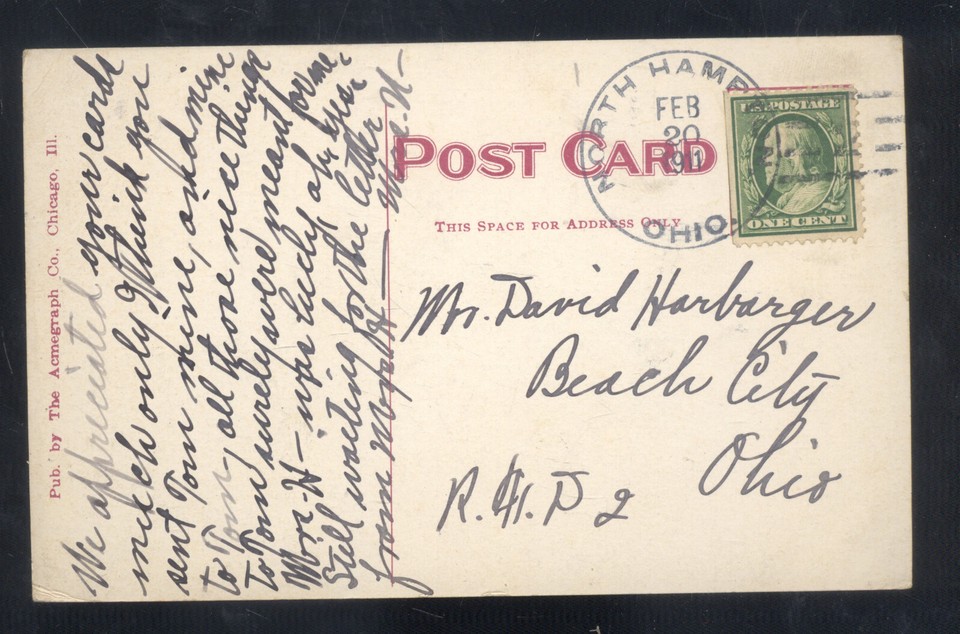 Pub. by The Acmegraph Co., Chicago, Ill.
We appreciated your cards
much only I think you
sent Tom mine, and mine
to Tom, all those nice things
to Tom surely were meant for me.
Mrs. H — was lucky all year
Still waiting for the letter
from Mrs. H — Mrs. H —
POST CARD
THIS SPACE FOR ADDRESS ONLY
NORTH HAMP
FEB
20
1911
OHIO
U.S. POSTAGE
ONE CENT
Mr. David Harbarger
Beach City
Ohio
R. F. D 2